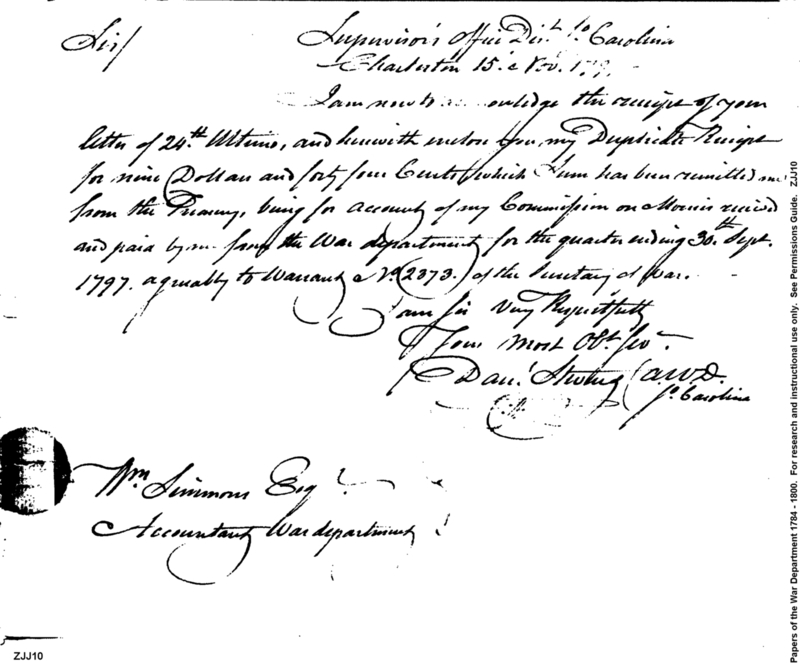 Sir/ Supervisor's Office Dist. So. Carolina
Charleston 15. Nov.
I am now to owledge the receipt of your
letter of 24.th Ultimo, and herewith enclose you my Duplicate Receipt
for nine Dollars and forty four Cents, which Sum has been remitted me
from the Treasury, being for account of my Commission on Monies received
and paid by me from the War department for the quarter ending 30.th Sept.
1797. agreeably to Warrant No. (2373.) of the Secretary of War.
I am Sir Very Respectfully
Your Most Obt. Serv.
Danl. Stevens
So. Carolina
Wm Simmons Esqr.
Accountant War department
ZJJ10
Papers of the War Department 1784 - 1800. For research and instructional use only. See Permissions Guide. ZJJ10